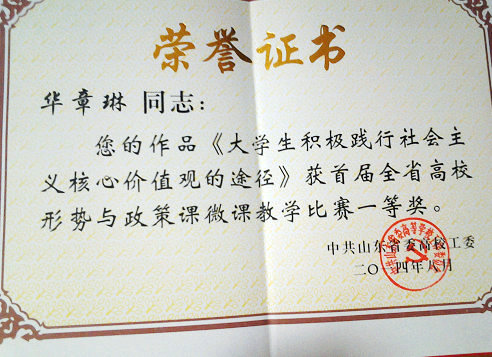 荣誉证书
华章琳 同志：
您的作品《大学生积极践行社会主
义核心价值观的途径》获首届全省高校
形势与政策课微课教学比赛一等奖。
中共山东省委高校工委
二〇一四年八月